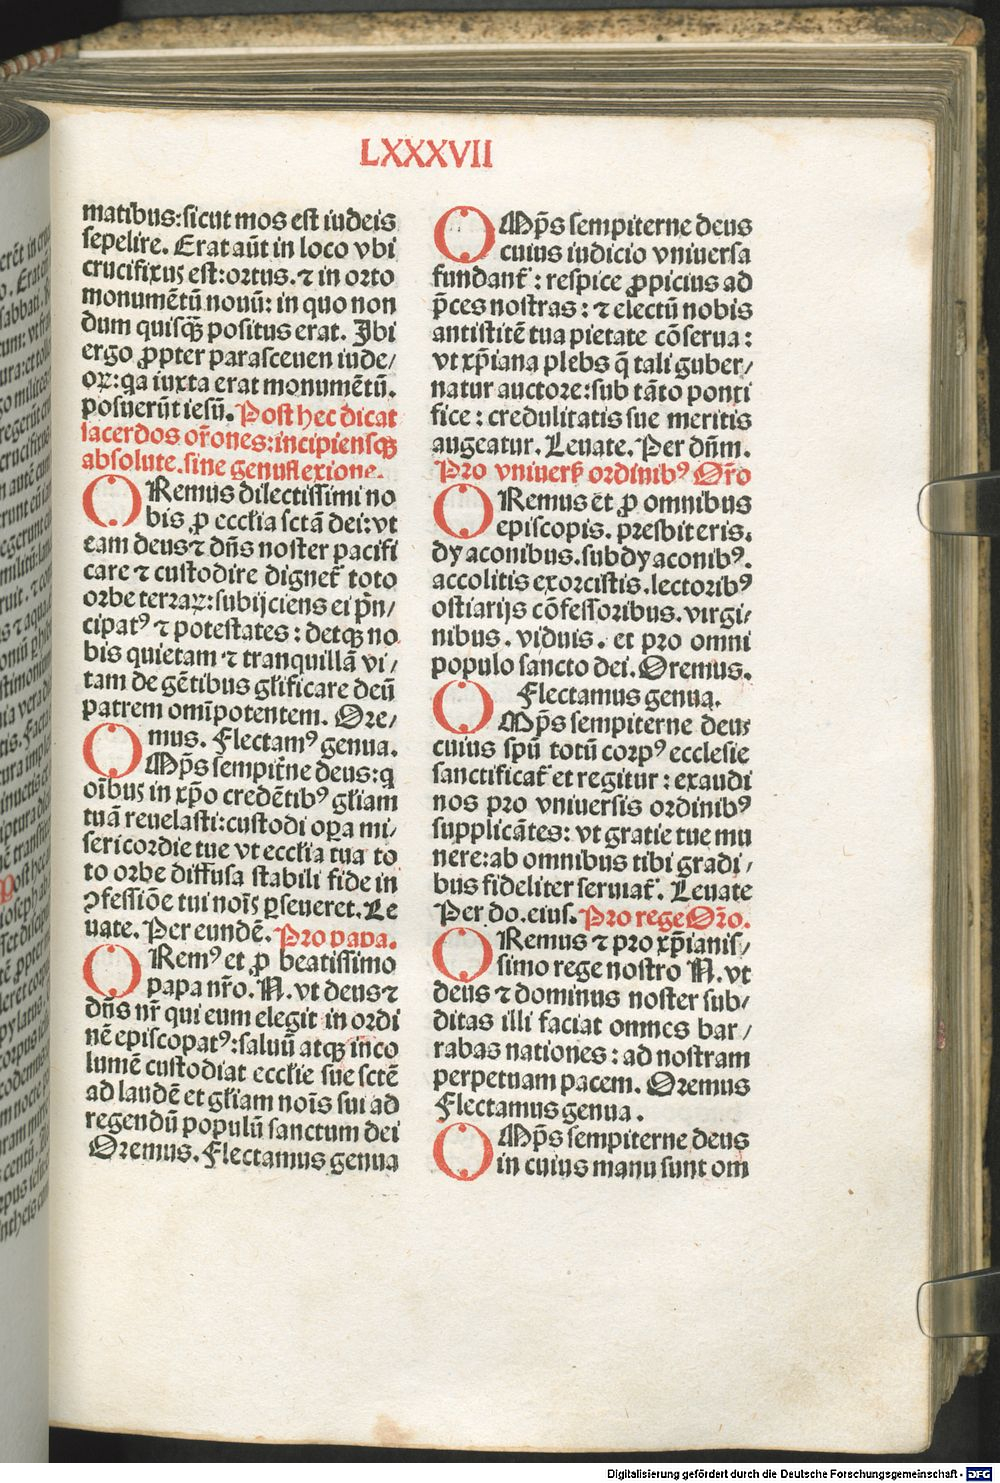 LXXXVII
matibus:sicut mos est iudeis
sepelire. Erat aūt in loco vbi
crucifixus est:ortus.⁊ in orto
monumētū nouū: in quo non
dum quisqꝫ positus erat. Ibi
ergo ꝓpter parasceuen iude/
oꝝ:qa iuxta erat monumētū.
posuerūt iesū. Post hec dicat
sacerdos or̄ones:incipiensqꝫ
absolute.sine genuflexione.
ORemus dilectissimi no
bis ꝓ eccl̄ia sctā dei:vt
eam deus⁊ dn̄s noster pacifi
care ⁊ custodire dignet̄ toto
orbe terraꝝ:subijciens ei p̄n/
cipatꝰ ⁊ potestates : detqꝫ no
bis quietam ⁊ tranquillā vi/
tam de gētibus gl̄ificare deū
patrem om̄ipotentem. Ore/
mus. Flectamꝰ genua.
OMp̄s sempit̄ne deus:q
oībus in xp̄o credētibꝰ gl̄iam
tuā reuelasti:custodi oꝑa mi/
sericordie tue vt eccl̄ia tua to
to orbe diffusa stabili fide in
ꝯfessiōe tui noīs ꝑseueret. Le
uate. Per eundē. Pro papa.
ORemꝰ et ꝓ beatissimo
papa nr̄o. N. vt deus⁊
dn̄s nr̄ qui eum elegit in ordi
nē episcopatꝰ:saluū atqꝫ inco
lumē custodiat eccl̄ie sue sctē
ad laudē et gl̄iam noīs sui ad
regendū populū sanctum dei
Oremus. Flectamus genua
OMp̄s sempiterne deus
cuius iudicio vniuersa
fundant̄ : respice ꝓpicius ad
p̄ces nostras : ⁊ electū nobis
antistitē tua pietate cōserua :
vt xp̄iana plebs q̄ tali guber/
natur auctore:sub tāto ponti
fice : credulitatis sue meritis
augeatur. Leuate. Per dn̄m.
Pro vniuers̄ ordinibꝰ Or̄o
ORemus et ꝓ omnibus
episcopis. presbiteris.
dyaconibus.subdyaconibꝰ.
accolitis exorcistis.lectoribꝰ
ostiarijs cōfessoribus. virgi/
nibus. viduis. et pro omni
populo sancto dei. Oremus.
Flectamus genua.
OMp̄s sempiterne deus
cuius spū totū corpꝰ ecclesie
sanctificat̄ et regitur : exaudi
nos pro vniuersis ordinibꝰ
supplicātes: vt gratie tue mu
nere:ab omnibus tibi gradi/
bus fideliter seruiat̄. Leuate
Per do. eius. Pro rege Or̄o.
ORemus ⁊ pro xp̄ianis/
simo rege nostro N. vt
deus ⁊ dominus noster sub/
ditas illi faciat omnes bar/
rabas nationes : ad nostram
perpetuam pacem. Oremus
Flectamus genua.
OMp̄s sempiterne deus
in cuius manu sunt om
Digitalisierung gefördert durch die Deutsche Forschungsgemeinschaft - DFG